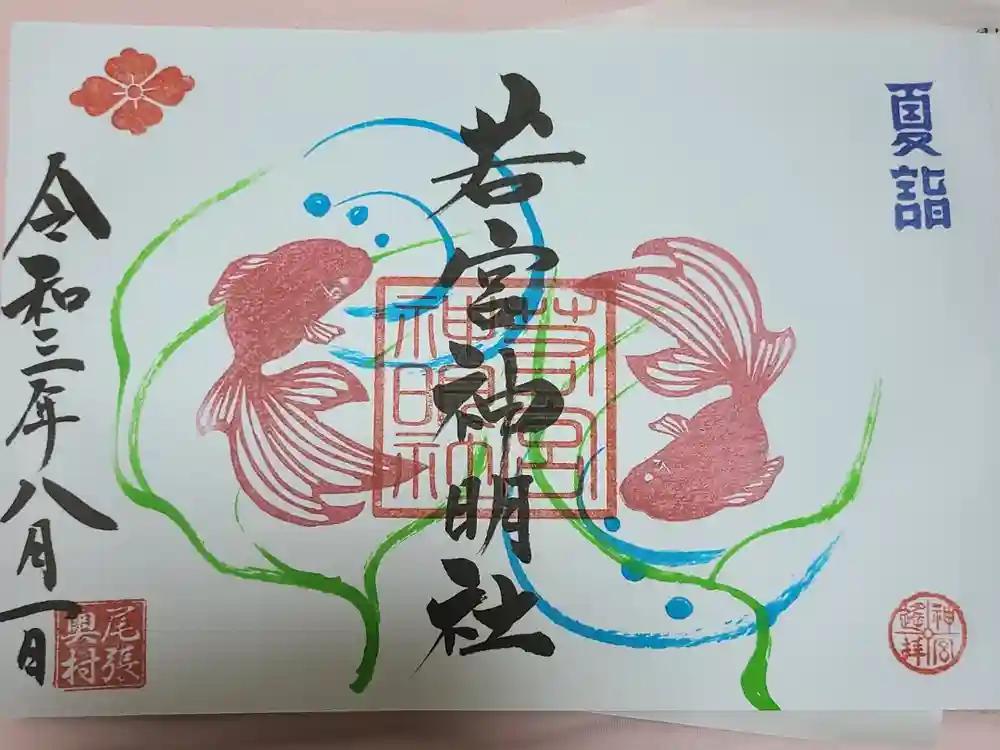 夏詣
神宮
遙拝
若宮神明社
若宮
神明社
令和三年八月一日
尾張
奥村